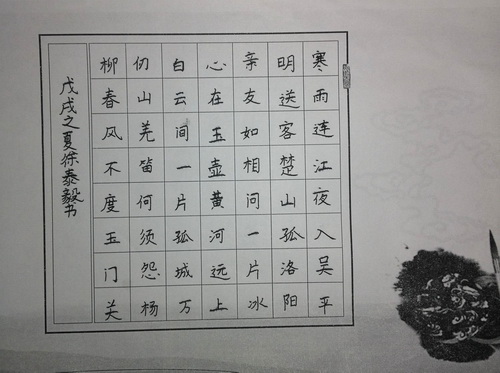 寒雨连江夜入吴平
明送客楚山孤洛阳
亲友如相问一片冰
心在玉壶黄河远上
白云间一片孤城万
仞山羌笛何须怨杨
柳春风不度玉门关
戊戌之夏徐泰毅书